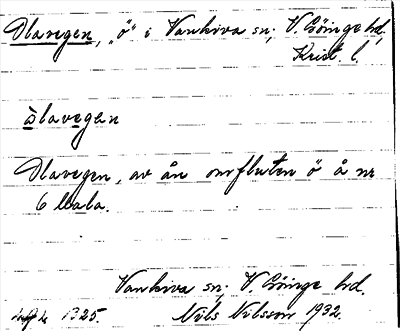 Olavegen, "ö" i Vankiva sn, V. Göinge hd,
Krist. l.
òlavegen
Olavegen, av ån omfluten ö å nr
6 Mala.
Vankiva sn, V Göinge hd.
1325. Nils Nilsson 1932.